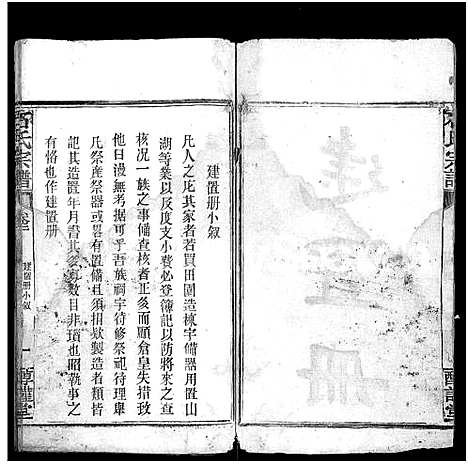 建置册
建置册小叙
凡人之庀其家者若買田園造棟宇備器用置山
湖等業以及度支小費必登簿記以防將來之查
核况一族之事備查核者正多而顧倉皇失措致
他日漫無考据可乎吾族祠宇待修祭祀待理卑
凡祭産祭器或舊有或續置備且須招欵製造者類皆
記其造置年月書其多寡数目非瑣也昭執事之
有恪也作建置册
石氏宗譜
卷三
建置册小叙
一